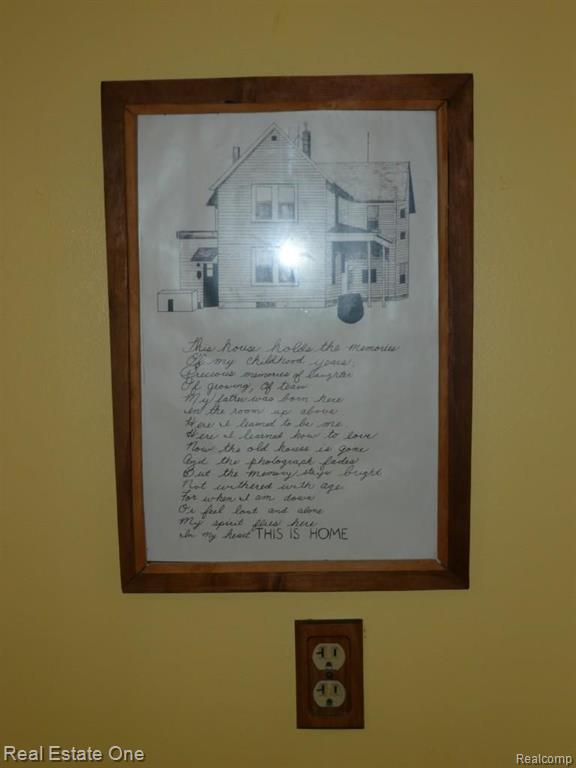 This house holds the memories
Of my childhood years;
Precious memories of laughter
Of growing, Of tears
My father was born here
In the room up above
Here I learned to be me
Here I learned how to love
Now the old house is gone
And the photograph fades
But the memory stays bright
Not withered with age
For when I am down
Or feel lost and alone
My spirit flies here
In my heart THIS IS HOME
Real Estate One
Realcomp